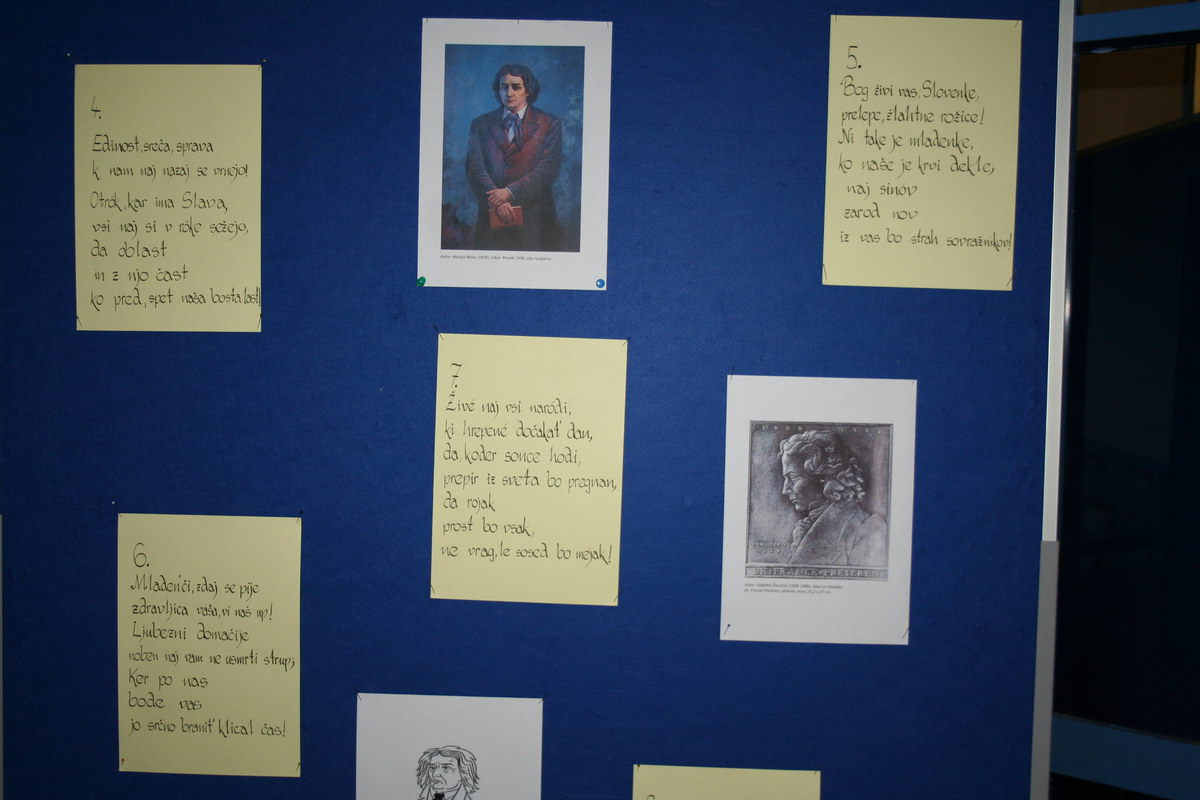 4.
Edinost, sreča, sprava
k nam naj nazaj se vrnejo!
Otrók, kar ima Slava,
vsi naj si v róke sežejo,
da oblast
in z njo čast
ko pred, spet naša bosta last!
5.
Bog živi vas, Slovenke,
prelepe, žlahtne rožice!
Ni take je mladenke,
ko naše je krvi dekle;
naj sinóv
zarod nov
iz vas bo strah sovražnikov!
7.
Živé naj vsi naródi,
ki hrepené dočakat' dan,
da, koder sonce hodi,
prepir iz sveta bo pregnan,
da rojak
prost bo vsak,
ne vrag, le sosed bo mejak!
6.
Mladen'či, zdaj se pije
zdravljica vaša, vi naš up!
Ljubezni domačije
noben naj vam ne usmrti strup;
Ker po nas
bode vas
jo srčno branit' klical čas!